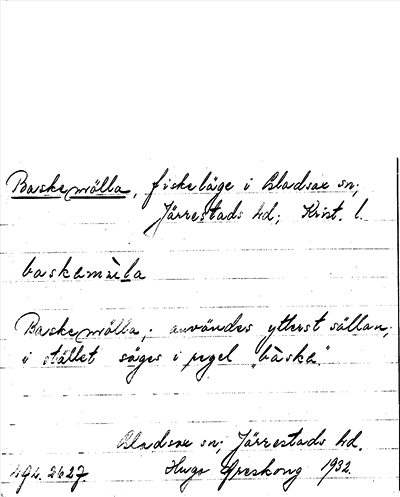 Baskemölla, fiskeläge i Bladsax sn;
Järrestads hd; Krist. l.
baskamöla
Baskemölla; användes ytterst sällan;
i stället säges i regel "båska".
Bladsax sn; Järrestads hd.
Hugo Areskoug 1932.